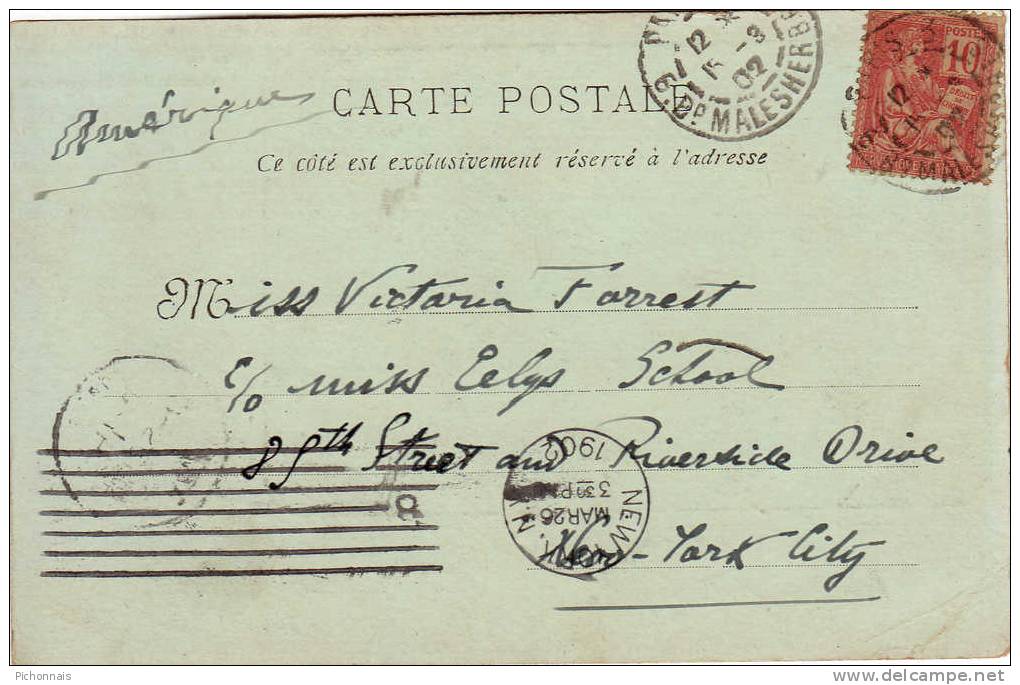 Amérique
CARTE POSTALE
Ce côté est exclusivement réservé à l'adresse
12
15 -3
02
6, Bᴰ MALESHERBES
POSTES
10
Miss Victoria Forrest
c/o Miss Eelys School
85th Street and Riverside Drive
New-York City
NEW YORK, N.Y.
MAR 26
330 PM
1902
Pichonnais
delcampe.net